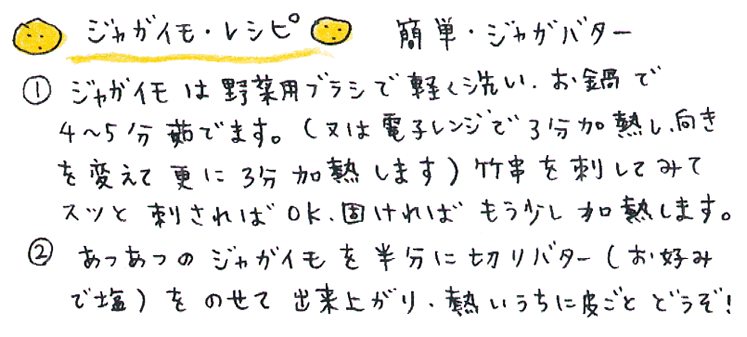 ジャガイモ・レシピ 簡単・ジャガバター
① ジャガイモは野菜用ブラシで軽く洗い、お鍋で
4〜5分茹でます。(又は電子レンジで3分加熱し、向き
を変えて更に3分加熱します)竹串を刺してみて
スッと刺さればOK、固ければもう少し加熱します。
② あつあつのジャガイモを半分に切りバター(お好み
で塩)をのせて出来上がり、熱いうちに皮ごとどうぞ!